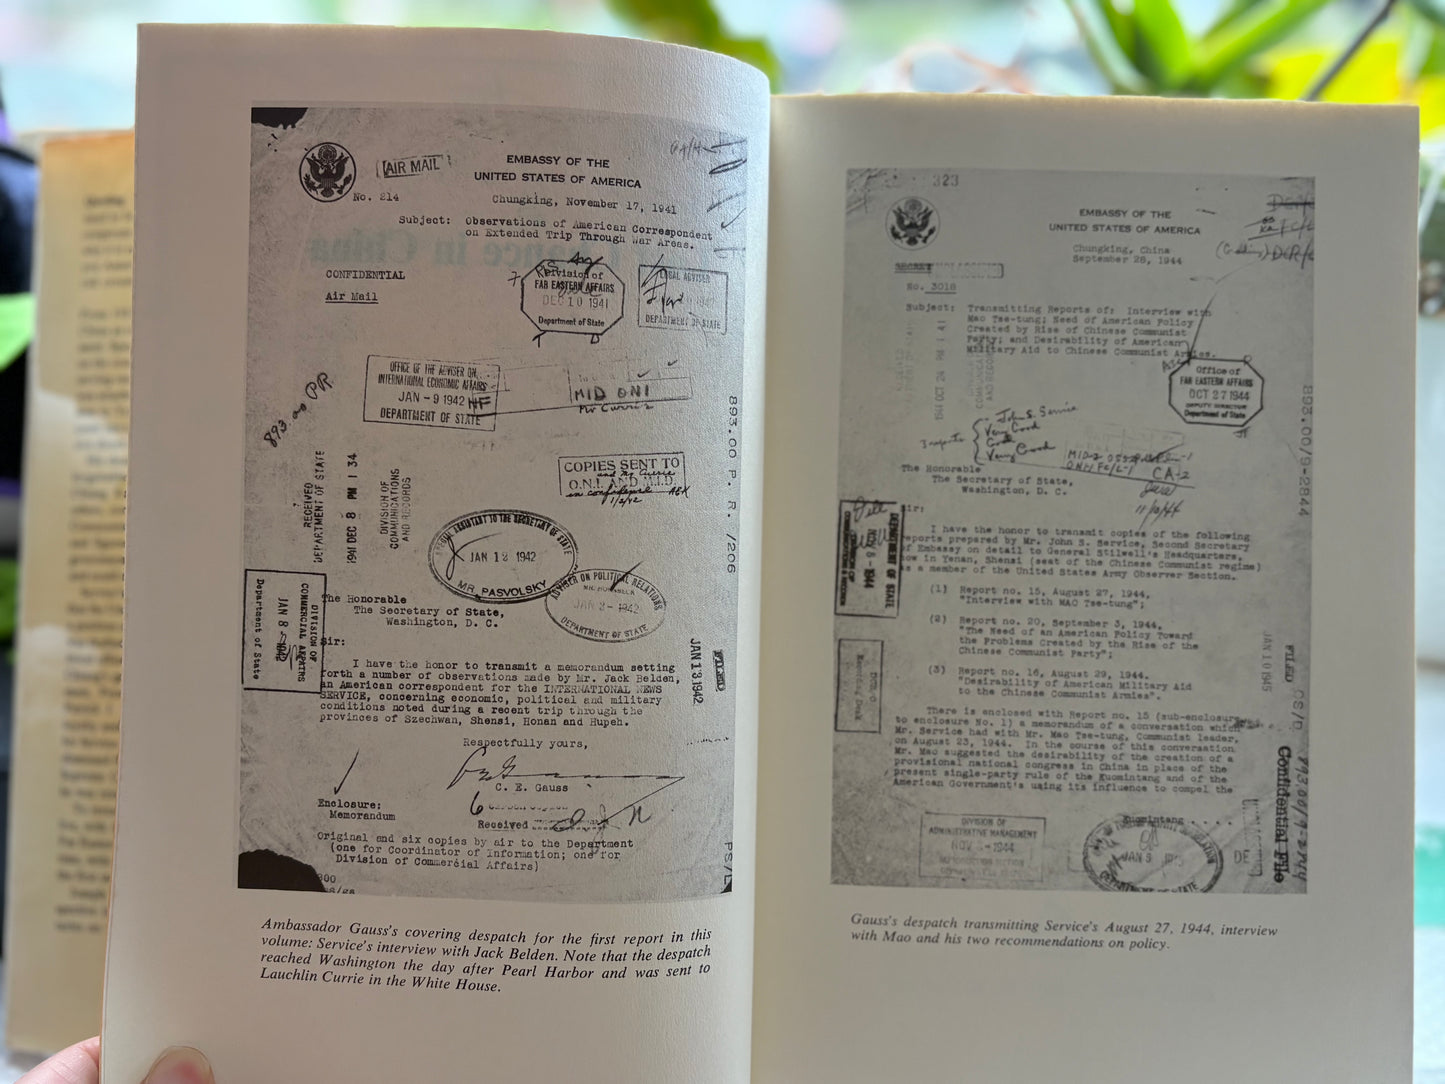 AIR MAIL
EMBASSY OF THE
UNITED STATES OF AMERICA
No. 214
Chungking, November 17, 1941
Subject: Observations of American Correspondent
on Extended Trip Through War Areas.
CONFIDENTIAL
Air Mail
Division of
FAR EASTERN AFFAIRS
DEC 10 1941
Department of State
LEGAL ADVISER
DEPARTMENT OF STATE
OFFICE OF THE ADVISER ON
INTERNATIONAL ECONOMIC AFFAIRS
JAN - 9 1942
DEPARTMENT OF STATE
MID ONI
Mr Currie
893.00 PR
893.00 P.R./206
RECEIVED
DEPARTMENT OF STATE
1941 DEC 8 PM 1 34
DIVISION OF
COMMUNICATIONS
AND RECORDS
COPIES SENT TO
and Mr Currie
O.N.I. AND M.I.D.
in confidence
1/2/42
SPECIAL ASSISTANT TO THE SECRETARY OF STATE
JAN 12 1942
MR. PASVOLSKY
ADVISER ON POLITICAL RELATIONS
JAN 3 - 1942
DEPARTMENT OF STATE
DIVISION OF
COMMERCIAL AFFAIRS
JAN 8 1942
Department of State
The Honorable
The Secretary of State,
Washington, D. C.
Sir:
I have the honor to transmit a memorandum setting
forth a number of observations made by Mr. Jack Belden,
an American correspondent for the INTERNATIONAL NEWS
SERVICE, concerning economic, political and military
conditions noted during a recent trip through the
provinces of Szechwan, Shensi, Honan and Hupeh.
JAN 13 1942
FILED
Respectfully yours,
C. E. Gauss
Enclosure:
Memorandum
6
Received
Original and six copies by air to the Department
(one for Coordinator of Information; one for
Division of Commercial Affairs)
800
PS/D
Ambassador Gauss's covering despatch for the first report in this
volume: Service's interview with Jack Belden. Note that the despatch
reached Washington the day after Pearl Harbor and was sent to
Lauchlin Currie in the White House.
323
EMBASSY OF THE
UNITED STATES OF AMERICA
Chungking, China
September 28, 1944
SECRET
No. 3018
Subject: Transmitting Reports of: Interview with
Mao Tse-tung; Need of American Policy
Created by Rise of Chinese Communist
Party; and Desirability of American
Military Aid to Chinese Communist Armies.
Office of
FAR EASTERN AFFAIRS
OCT 27 1944
DEPUTY DIRECTOR
Department of State
John S. Service
3 reports
Very Good
Good
Very Good
CA-2
11/2/44
893.00/9-2844
The Honorable
The Secretary of State,
Washington, D. C.
Sir:
I have the honor to transmit copies of the following
reports prepared by Mr. John S. Service, Second Secretary
of Embassy on detail to General Stilwell's Headquarters,
now in Yenan, Shensi (seat of the Chinese Communist regime)
as a member of the United States Army Observer Section.
DEPARTMENT OF STATE
NOV 6 - 1944
(1) Report no. 15, August 27, 1944,
"Interview with MAO Tse-tung";
(2) Report no. 20, September 3, 1944,
"The Need of an American Policy Toward
the Problems Created by the Rise of the
Chinese Communist Party";
(3) Report no. 16, August 29, 1944,
"Desirability of American Military Aid
to the Chinese Communist Armies".
JAN 10 1945
FILED
There is enclosed with Report no. 15 (sub-enclosure
to enclosure No. 1) a memorandum of a conversation which
Mr. Service had with Mr. Mao Tse-tung, Communist leader,
on August 23, 1944. In the course of this conversation
Mr. Mao suggested the desirability of the creation of a
provisional national congress in China in place of the
present single-party rule of the Kuomintang and of the
American Government's using its influence to compel the
Kuomintang . . . .
CS/D
Confidential File
893.00/9-2844
DIVISION OF
ADMINISTRATIVE MANAGEMENT
NOV 3 - 1944
JAN 3
DEPARTMENT OF STATE
DE
Gauss's despatch transmitting Service's August 27, 1944, interview
with Mao and his two recommendations on policy.